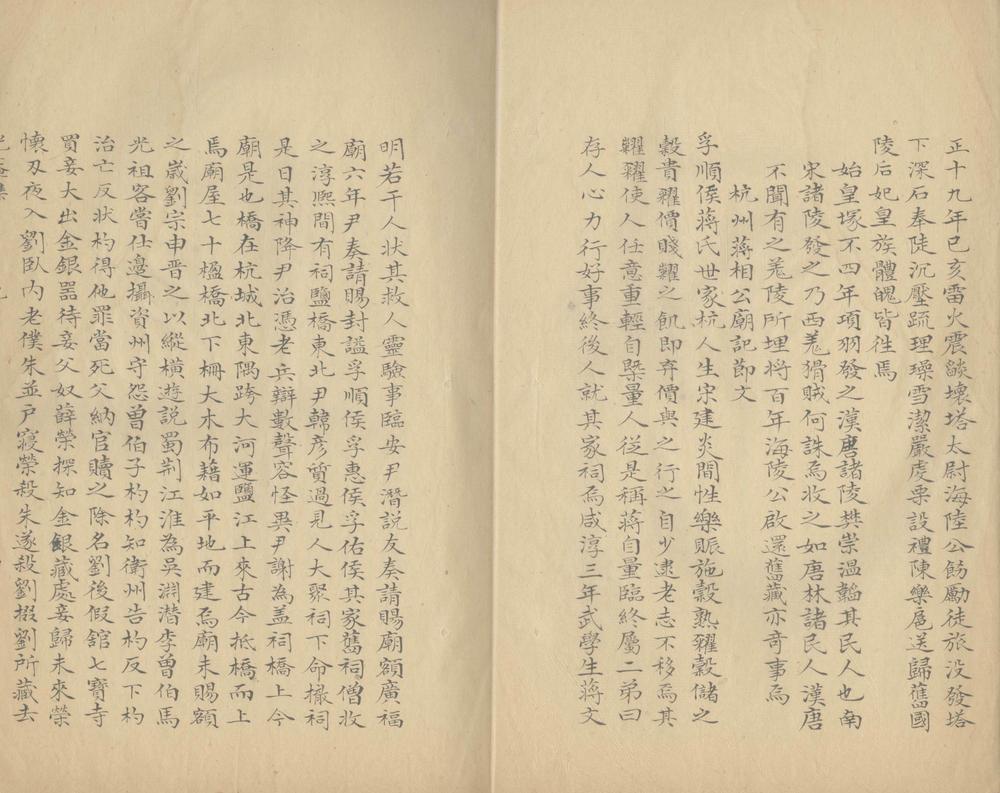 正十九年已亥雷火震燄壞塔太尉海陸公飭勵徒旅没發塔
下深石奉陡沉壓疏理璪雪潔嚴虔栗設禮陳樂扈送歸舊國
陵后妃皇族體魄皆徃焉
始皇塚不四年項羽發之漢唐諸陵樊崇溫韜其民人也南
宋諸陵發之乃西羗猾賊何誅烏收之如唐林諸民人漢唐
不聞有之羗陵所埋将百年海陵公啟還舊藏亦竒事烏
杭州蔣相公廟記節文
孚順侯蔣氏世家杭人生宋建炎間性樂賑施穀熟糴穀儲之
穀貴糶價賤糴之飢即弃價與之行之自少逮老志不移焉其
糶糴使人任意重輕自槩量人従是稱蔣自量臨終屬二弟曰
存人心力行好事終後人就其家祠烏咸淳三年武學生蔣文
明若干人状其救人靈驗事臨安尹潛説友奏請賜廟額廣福
廟六年尹奏請賜封謚孚順侯孚惠侯孚佑侯其家舊祠僧收
之淳熙間有祠鹽橋東北尹韓彦質過見人大聚祠下命撤祠
是日其神降尹治憑老兵辯數聲容怪異尹謝為盖祠橋上今
廟是也橋在杭城北東隅跨大河運鹽江上來古今抵橋而上
焉廟屋七十楹橋北下柵大木布藉如平地而建烏廟未賜額
之歲劉宗申晋之以縱橫遊説蜀荆江淮為吳淵潛李曽伯馬
光祖客嘗仕邊攝資州守怨曽伯子杓杓知衛州告杓反下杓
治亡反状杓得他罪當死父納官贖之除名劉後假舘七寶寺
買妾大出金銀噐待妾父奴薛榮探知金銀藏處妾歸未來榮
懷刄夜入劉臥内老僕朱並戸寢榮殺朱遂殺劉掇劉所藏去